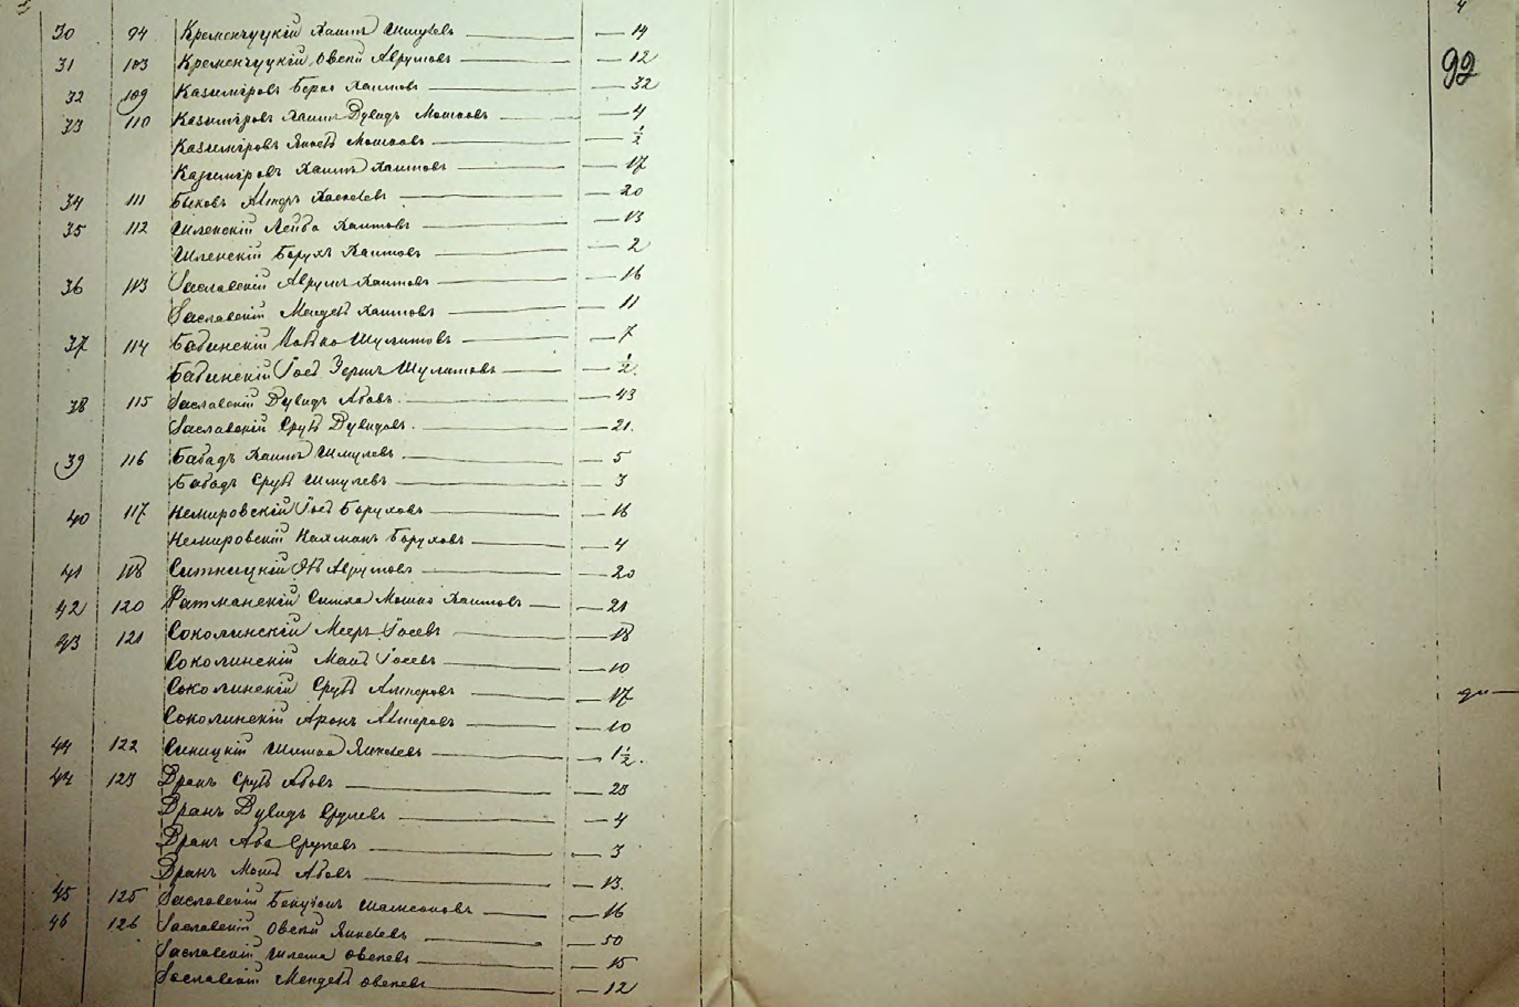 4
92
30 94 Кременчуцкій Хаимъ Шмулевъ — 14
31 103 Кременчуцкій Овсей Аврумовъ — 12
32 109 Казиміровъ Берко Хаимовъ — 32
33 110 Казиміровъ Хаимъ Дувидъ Мошковъ — 4
Казиміровъ Мошковъ — ½
Казиміровъ Хаимъ Хаимовъ — 17
34 111 Быковъ — 20
35 112 Шленскій Лейба Хаимовъ — 13
Шленскій Борухъ Хаимовъ — 2
36 113 Заславскій Аврумъ Хаимовъ — 16
Заславскій Мендель Хаимовъ — 11
37 114 Бабинскій Шулимовъ — 7
Бабинскій Іось Зерикъ Шулимовъ — ½
38 115 Заславскій Дувидъ Абовъ — 43
Заславскій Сруль Дувидовъ — 21
39 116 Бабадъ Хаимъ Шмулевъ — 5
Бабадъ Сруль Шмулевъ — 3
40 117 Немировскій Іось Боруховъ — 16
Немировскій Калманъ Боруховъ — 4
41 118 Ситницкій Аврумовъ — 20
42 120 Фатманскій Симха Мошко Хаимовъ — 21
43 121 Соколинскій Мееръ Іосевъ — 18
Соколинскій Іосевъ — 10
Соколинскій Сруль Алтеровъ — 17
Соколинскій Аронъ Алтеровъ — 10
44 122 Синицкій Янкелевъ — 1½
44 123 Дранъ Сруль Абовъ — 23
Дранъ Дувидъ Срулевъ — 4
Дранъ Аба Срулевъ — 3
Дранъ Абовъ — 13
45 125 Заславскій Шамсоновъ — 16
46 126 Заславскій Овсей Янкелевъ — 50
Заславскій Шлема Овсеевъ — 15
Заславскій Мендель Овсеевъ — 12